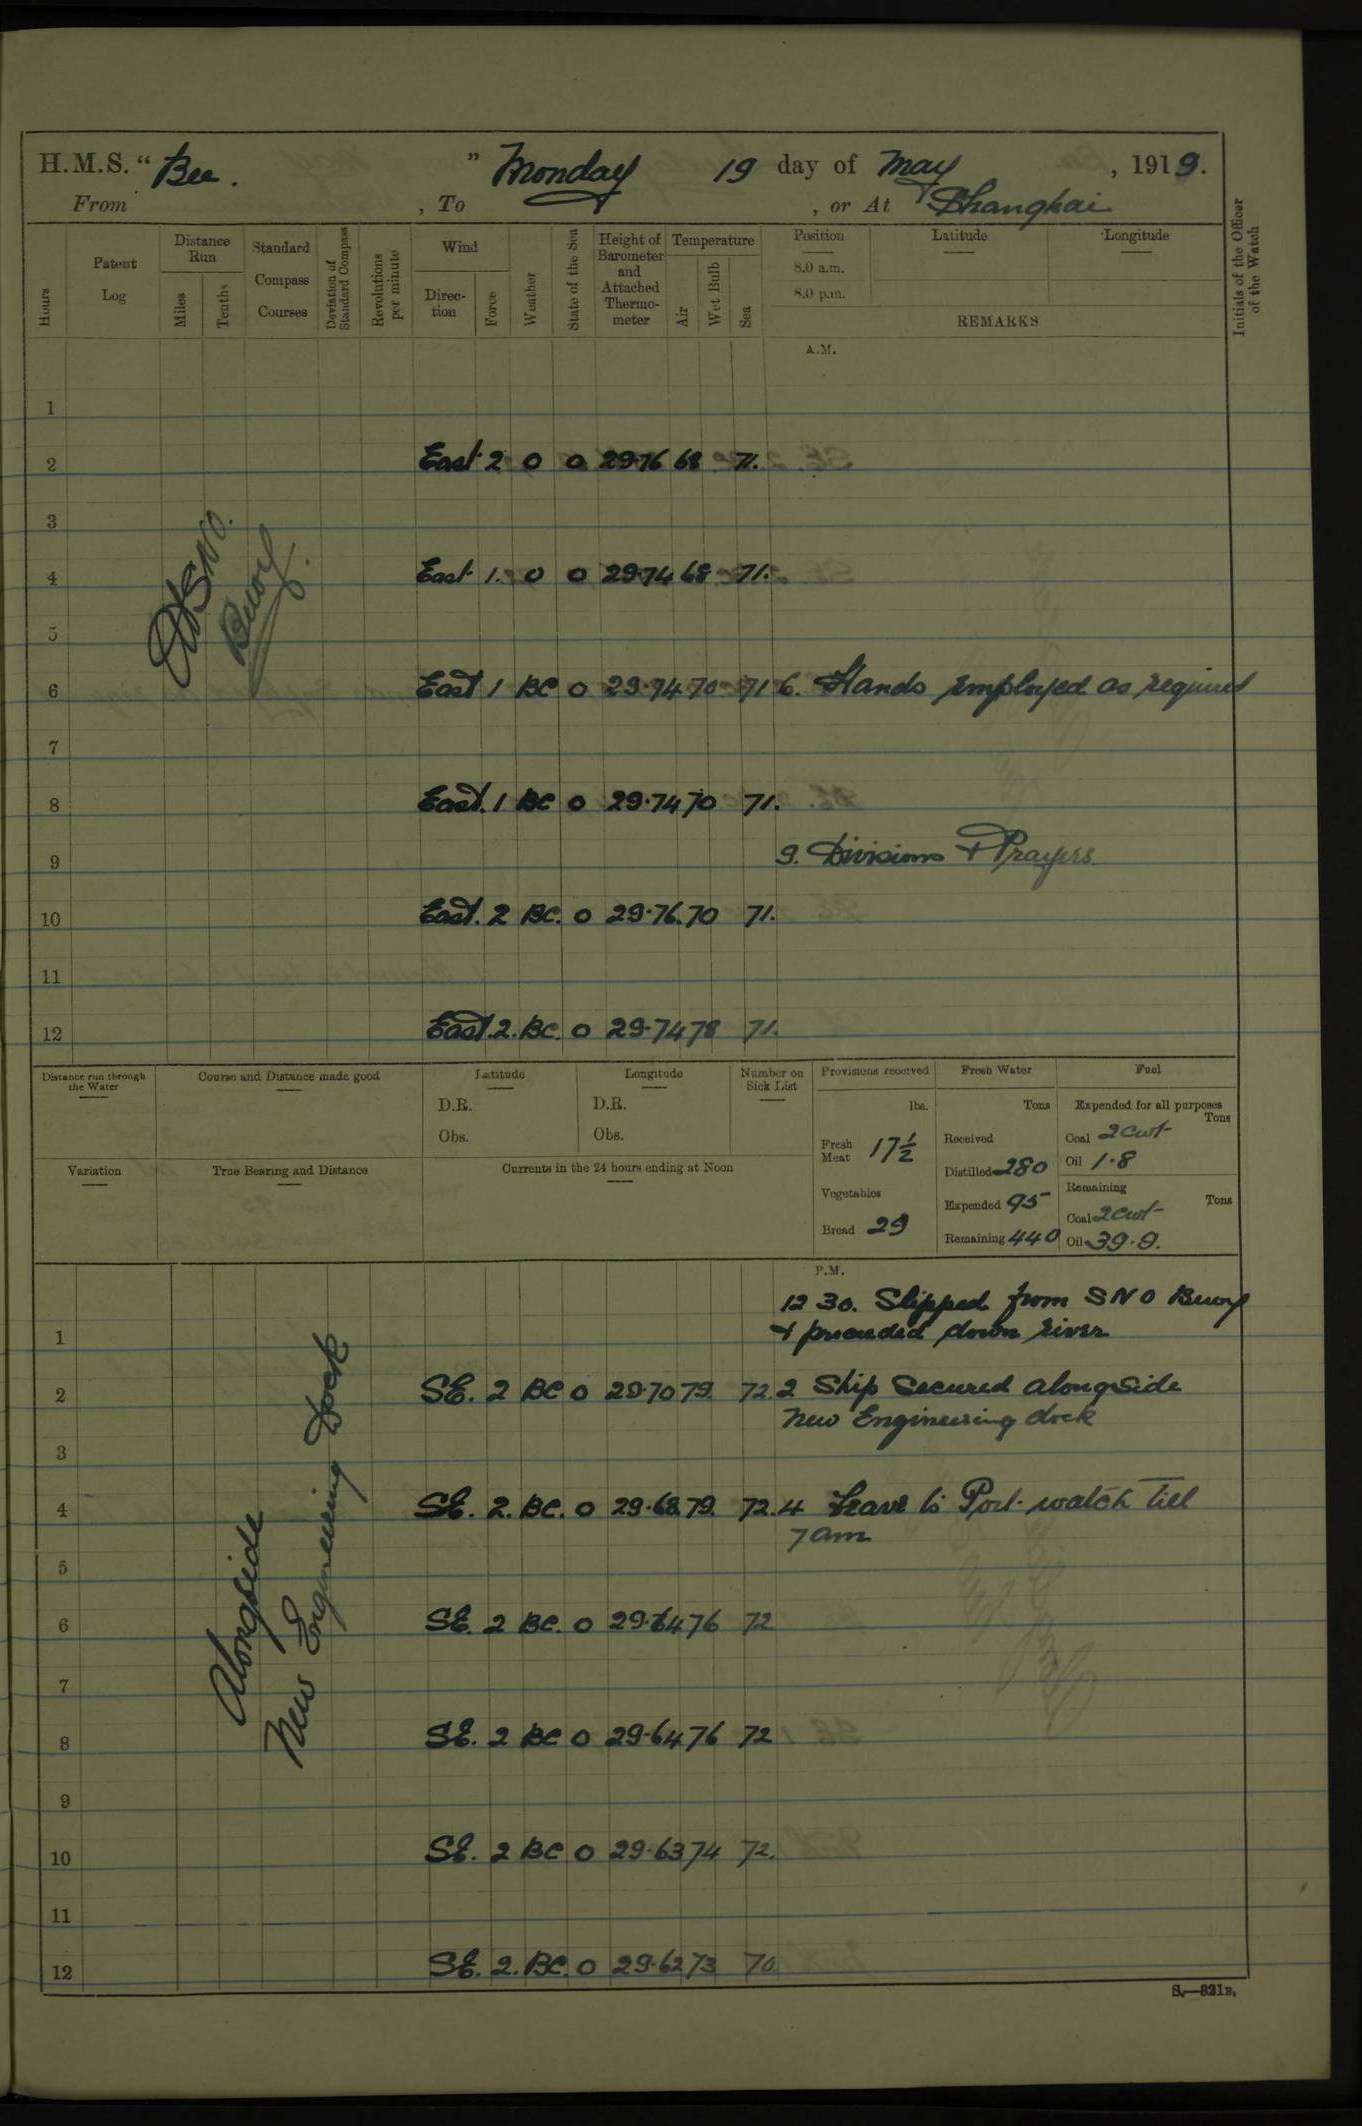 H.M.S. " Bee. " Monday 19 day of May, 1919.
From , To , or At Shanghai
Hours
Patent Log
Distance Run
Miles
Tenths
Standard Compass Courses
Deviation of Standard Compass
Revolutions per minute
Wind
Direction
Force
Weather
State of the Sea
Height of Barometer and Attached Thermometer
Temperature
Air
Wet Bulb
Sea
Position
8.0 a.m.
8.0 p.m.
Latitude
Longitude
REMARKS
Initials of the Officer of the Watch
A.M.
1
2 East 2 0 0 29.76 68 71.
3
4 East 1. 0 0 29.74 68 71.
5
6 East 1 BC 0 29.74 70 71 6. Hands employed as required
7
8 East. 1 BC 0 29.74 70 71.
9 9. Divisions & Prayers.
10 East. 2 BC. 0 29.76. 70 71.
11
12 East. 2. BC. 0 29.74 78 71.
S.N.O.
Buoy.
Distance run through the Water
Course and Distance made good
Latitude
D.R.
Obs.
Longitude
D.R.
Obs.
Number on Sick List
Variation
True Bearing and Distance
Currents in the 24 hours ending at Noon
Provisions received
lbs.
Fresh Meat 17½
Vegetables
Bread 29
Fresh Water
Tons
Received
Distilled 280
Expended 95
Remaining 440
Fuel
Expended for all purposes
Tons
Coal 2 cwt
Oil 1.8
Remaining
Tons
Coal 2 cwt
Oil 39.9.
P.M.
12 30. Slipped from S N O Buoy
1 & proceeded down river
2 SE. 2 BC 0 29.70 79. 72. 2 Ship Secured alongside
New Engineering dock
3
4 SE. 2. BC. 0 29.68 79. 72. 4 Leave to Port watch till
7 am
5
6 SE. 2 BC. 0 29.64 76 72
7
8 SE. 2 BC 0 29.64 76 72
9
10 SE. 2 BC 0 29.63 74 72.
11
12 SE. 2. BC. 0 29.62 73 70
Alongside
New Engineering Dock
S.—321B.